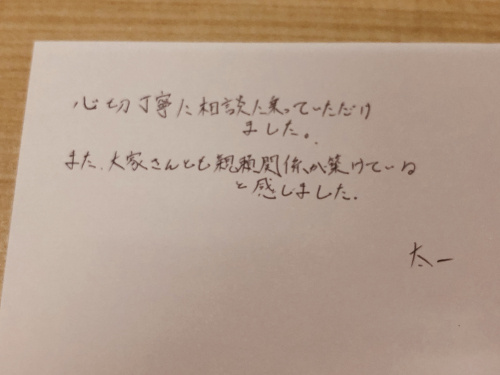 心切丁寧に相談に乗っていただけ
ました。
また、大家さんとも親頼関係が築けている
と感じました。
太一